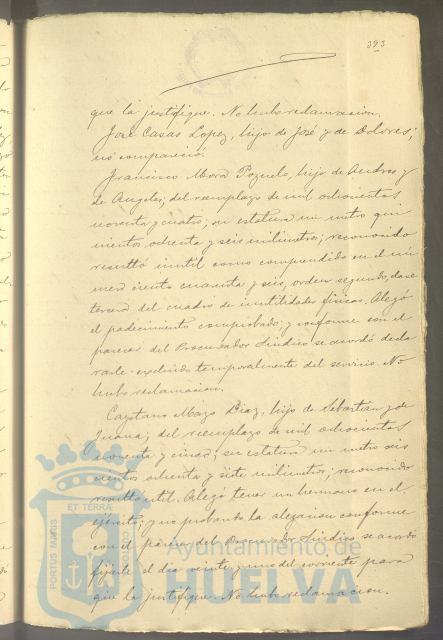 393
que la justifique. No hubo reclamacion.
José Casas Lopez, hijo de José y de Dolores;
no compareció.
Francisco Mora Pozuelo, hijo de Andres y
de Angeles; del reemplazo de mil ochocientos
noventa y cuatro; su estatura un metro qui
nientos ochenta y seis milimetros; reconocido
resultó inutil como comprendido en el nú
mero ciento cuarenta y seis, orden segundo, clase
tercera del cuadro de inutilidades fisicas. Alegó
el padecimiento comprobado; y conforme con el
parecer del Procurador Sindico se acordó decla
rarle excluido temporalmente del servicio. No
hubo reclamacion.
Cayetano Mazo Diaz, hijo de Sebastian y de
Juana; del reemplazo de mil ochocientos
noventa y cinco; su estatura un metro seis
cientos ochenta y siete milimetros; reconocido
resultó util. Alegó tener un hermano en el
ejército; y no probando la alegacion conforme
con el parecer del Procurador Sindico se acordó
fijarle el dia veinte y uno del corriente para
que la justifique. No hubo reclamacion.
PORTUS MARIS ET TERRÆ
Ayuntamiento de
HUELVA